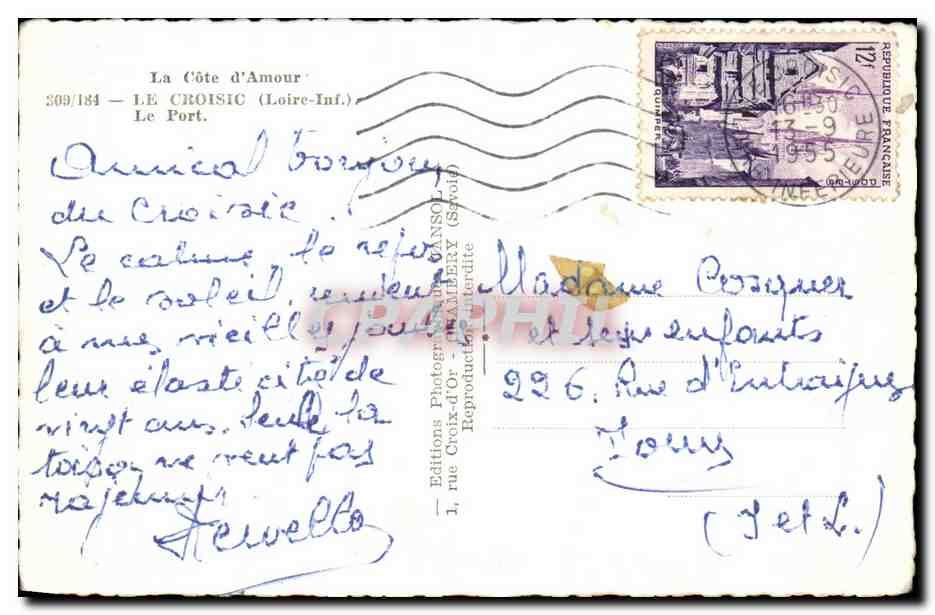 La Côte d'Amour
309/184 — LE CROISIC (Loire-Inf.)
Le Port.
Amical bonjour
du Croisic.
Le calme, le repos
et le soleil, rendent
à mes vieilles
leur élasticité de
vingt ans, seule la
ne veut pas
rajeunir
— Editions Photographiques
1, rue Croix-d'Or - CHAMBERY (Savoie)
Reproduction interdite
REPUBLIQUE FRANÇAISE
12f
QUIMPER
16-30
13-9
1955
INFERIEURE
Madame Cosquer
et ses enfants
226, Rue d'Entraigues
Tours
(I et L.)
CRAPHIL